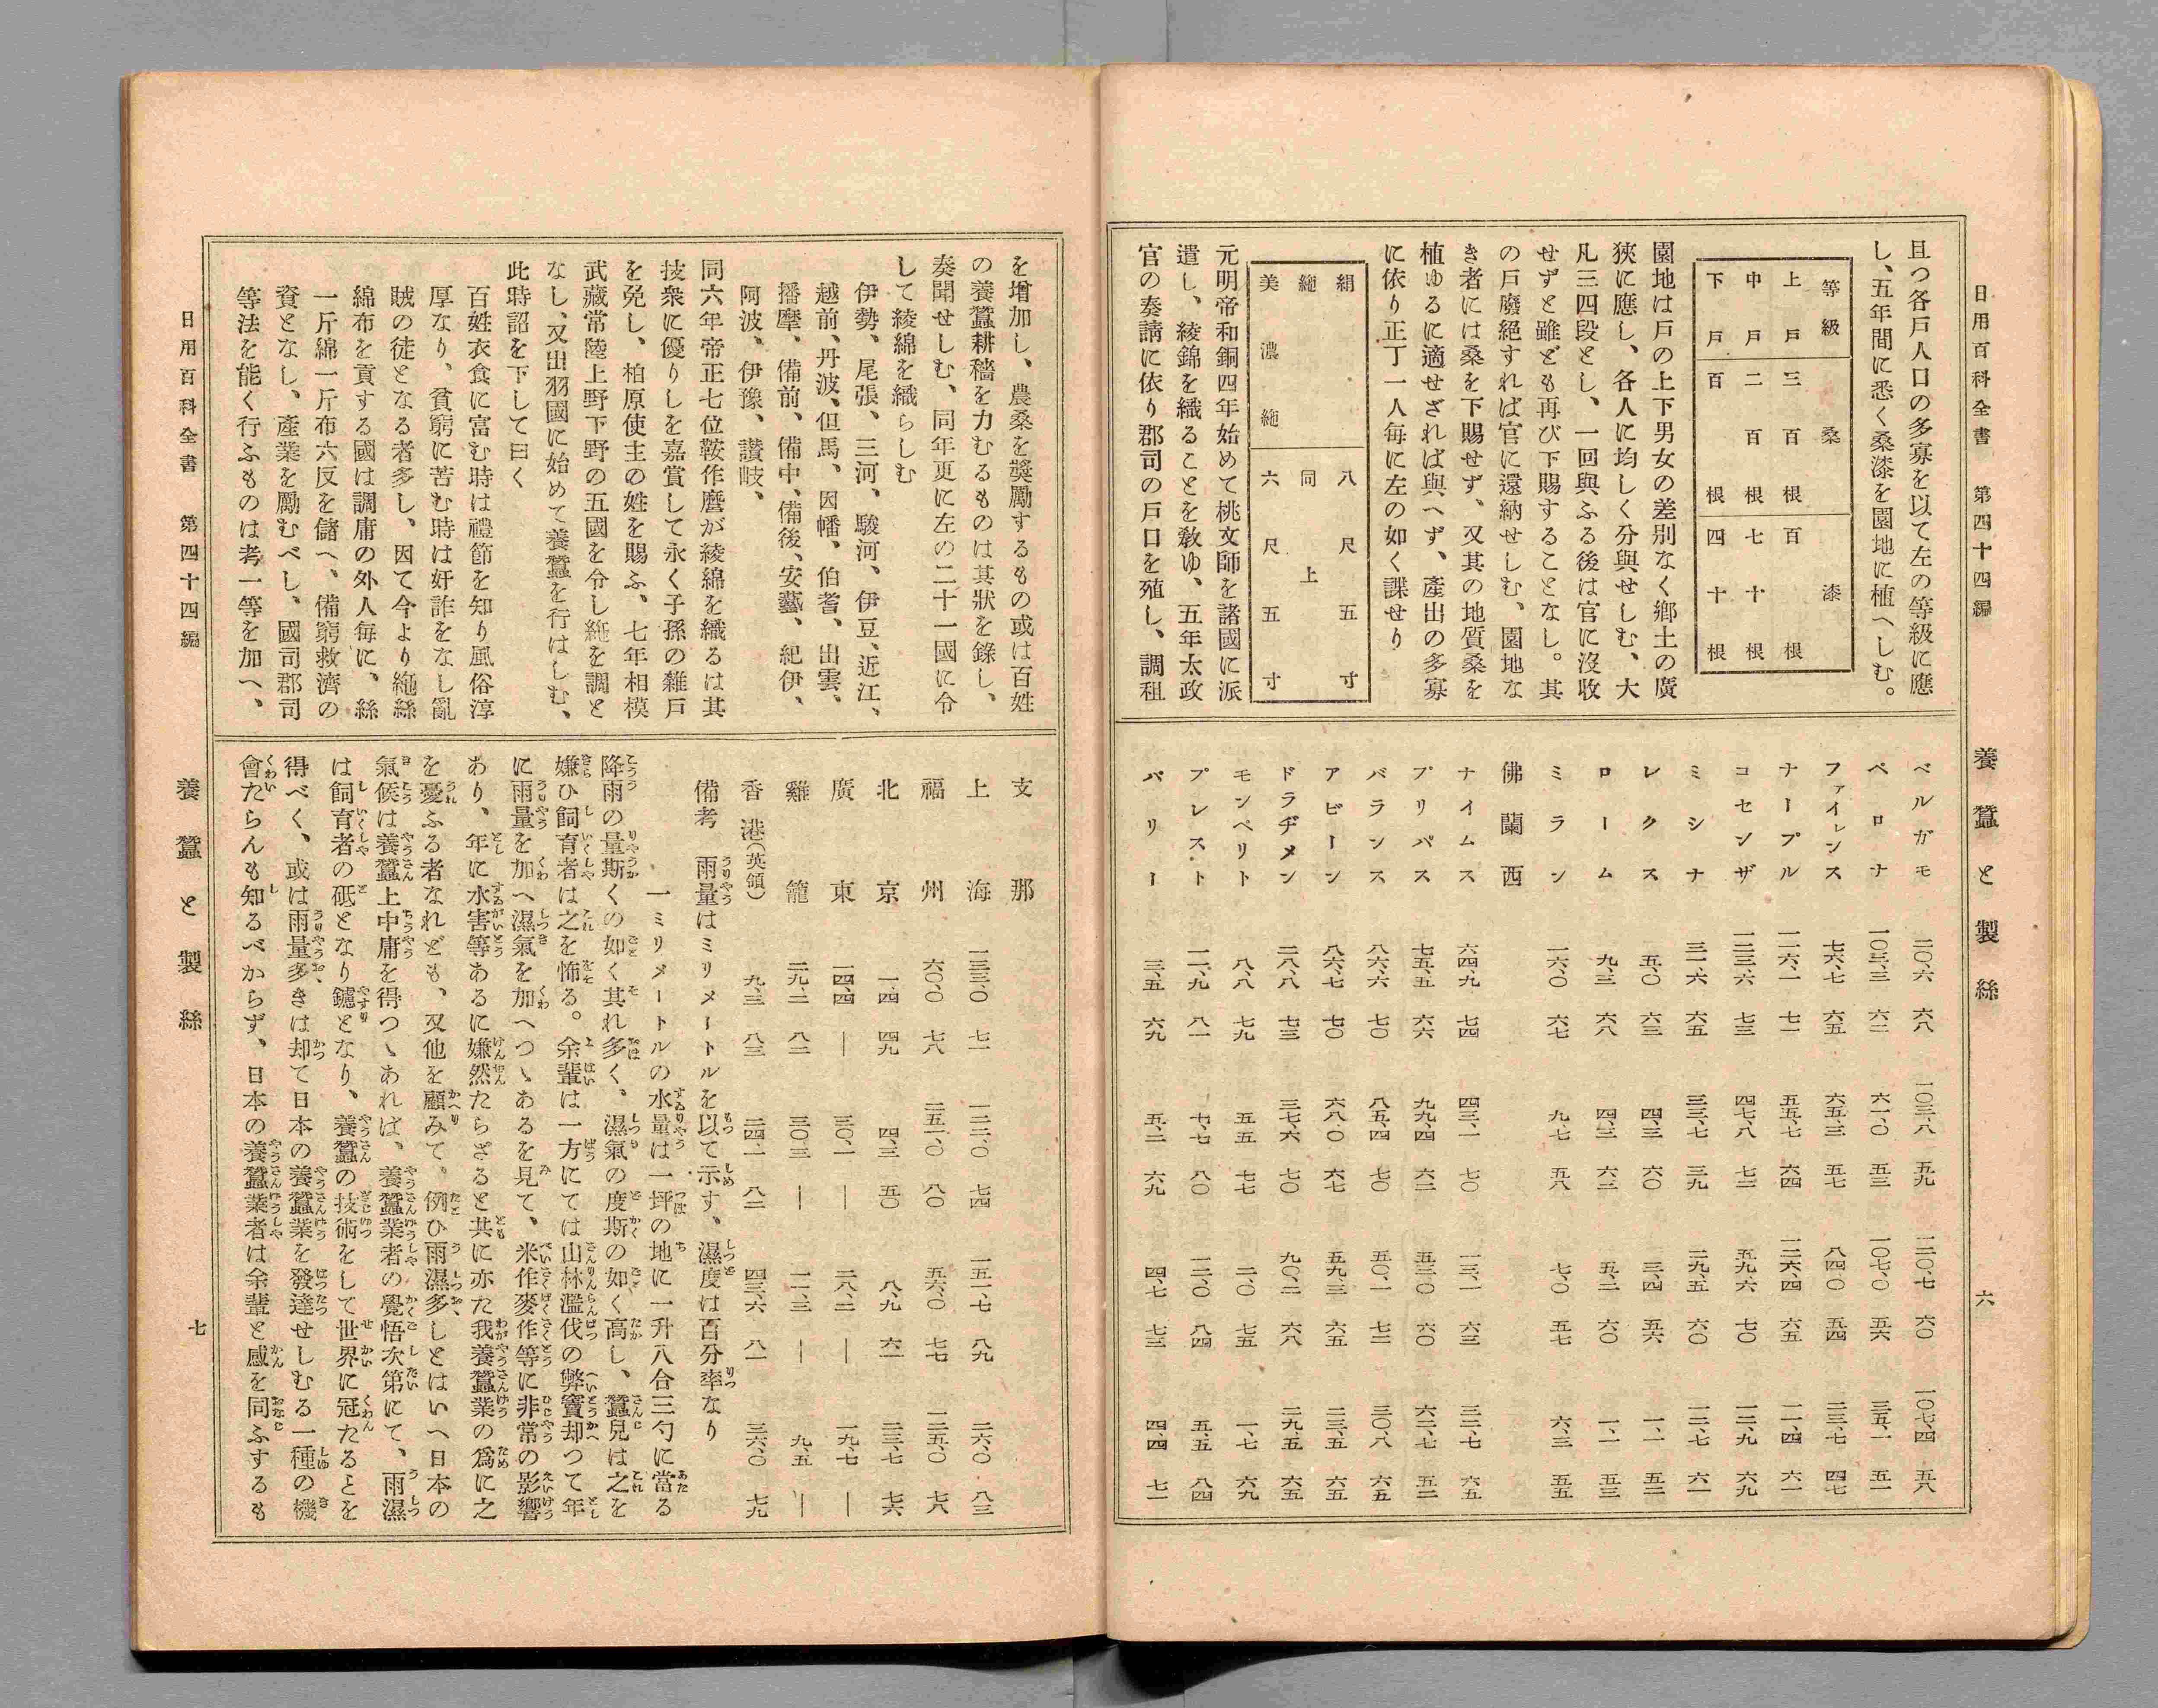 日用百科全書　第四十四編
養蠶と製絲
六
且つ各戸人口の多寡を以て左の等級に應
し、五年間に悉く桑漆を園地に植へしむ。
等級　桑　漆
上戸　三百根　百根
中戸　二百根　七十根
下戸　百根　四十根
園地は戸の上下男女の差別なく鄕土の廣
狹に應し、各人に均しく分與せしむ、大
凡三四段とし、一回與ふる後は官に沒收
せずと雖ども再び下賜することなし。其
の戸廢絕すれば官に還納せしむ、園地な
き者には桑を下賜せず、又其の地質桑を
植ゆるに適せざれば與へず、產出の多寡
に依り正丁一人毎に左の如く課せり
絹　八尺五寸
絁　同上
美濃絁　六尺五寸
元明帝和銅四年始めて桃文師を諸國に派
遣し、綾錦を織ることを敎ゆ、五年太政
官の奏請に依り郡司の戸口を殖し、調租
ベルガモ　二〇、六　六八　一〇三、八　五九　一二〇、七　六〇　一〇七、四　五八
ベロナ　一〇三、三　六二　六一、〇　五三　一〇七、〇　五六　三五、一　五一
ファイレンス　七六、七　六五　六五、三　五七　八四、〇　五四　二三、七　四七
ナープル　一二六、一　七一　五五、七　六四　一二六、四　六五　一一、四　六一
コセンザ　一二三、六　七三　四七、八　七二　五九、六　七〇　一二、九　六九
ミシナ　三一、六　六五　三三、七　三九　二九、五　六〇　一二、七　六一
レクス　五、〇　六三　四、三　六〇　三、四　五六　一、一　五二
ローム　九、三　六八　四、三　六二　五、二　六〇　一、一　五三
ミラン　一六、〇　六七　九、七　五八　七、〇　五七　六、三　五五
佛蘭西
ナイムス　六四、九　七四　四三、一　七〇　一三、一　六三　三二、七　六五
プリバス　七五、五　六六　九九、四　六二　五三、〇　六〇　六二、七　五二
バランス　八六、六　七〇　八五、四　七〇　五〇、一　七二　三〇、八　六五
アビーン　八六、七　七〇　六八、〇　六七　五九、三　六五　二三、五　六五
ドラヂメン　二八、八　七三　三七、六　七〇　九〇、二　六八　二九、五　六五
モンペリト　八、八　七九　五五　七七　二、〇　七五　一、七　六九
プレスト　一一、九　八一　七、七　八〇　一二、〇　八四　五、五　八四
パリー　三、五　六九　五、二　六九　四、七　七三　四、四　七一
を增加し、農桑を奬勵するもの或は百姓
の養蠶耕穡を力むるものは其狀を錄し、
奏聞せしむ、同年更に左の二十一國に令
して綾綿を織らしむ
伊勢、尾張、三河、駿河、伊豆、近江、
越前、丹波、但馬、因幡、伯耆、出雲、
播摩、備前、備中、備後、安藝、紀伊、
阿波、伊豫、讃岐、
同六年帝正七位鞍作麿が綾綿を織るは其
技衆に優りしを嘉賞して永く子孫の雜戸
を免し、柏原使主の姓を賜ふ、七年相模
武藏常陸上野下野の五國を令し絁を調と
なし、又出羽國に始めて養蠶を行はしむ、
此時詔を下して曰く
百姓衣食に富む時は禮節を知り風俗淳
厚なり、貧窮に苦む時は奸詐をなし亂
賊の徒となる者多し、因て今より絁絲
綿布を貢する國は調庸の外人毎に、絲
一斤綿一斤布六反を儲へ、備窮救濟の
資となし、產業を勵むべし、國司郡司
等法を能く行ふものは考一等を加へ、
支那
上海　一三三、〇　七一　一二二、〇　七四　一五一、七　八九　二六、〇　八三
福州　六〇、〇　七八　二五一、〇　八〇　五六、〇　七七　一二五、〇　七八
北京　一、四　四九　四、三　五〇　八、九　六一　二三、七　七六
廣東　一四、四　—　三〇、一　—　二八、二　—　一九、七　—
雞籠　二九、二　八二　三〇、三　—　一一、三　—　九、五　—
香港（英領）　九、三　八三　二四、一　八二　四三、六　八一　三六、〇　七九
備考　雨量はミリメートルを以て示す、濕度は百分率なり
一ミリメートルの水量は一坪の地に一升八合三勺に當る
降雨の量斯くの如く其れ多く、濕氣の度斯の如く高し、蠶兒は之を
嫌ひ飼育者は之を怖る。余輩は一方にては山林濫伐の弊竇却つて年
に雨量を加へ濕氣を加へつヽあるを見て、米作麥作等に非常の影響
あり、年に水害等あるに嫌然たらざると共に亦た我養蠶業の爲に之
を憂ふる者なれども、又他を顧みて。例ひ雨濕多しとはいへ日本の
氣候は養蠶上中庸を得つヽあれば、養蠶業者の覺悟次第にて、雨濕
は飼育者の砥となり鑢となり、養蠶の技術をして世界に冠たるとを
得べく、或は雨量多きは却て日本の養蠶業を發達せしむる一種の機
會たらんも知るべからず、日本の養蠶業者は余輩と感を同ふするも
日用百科全書　第四十四編
養蠶と製絲
七